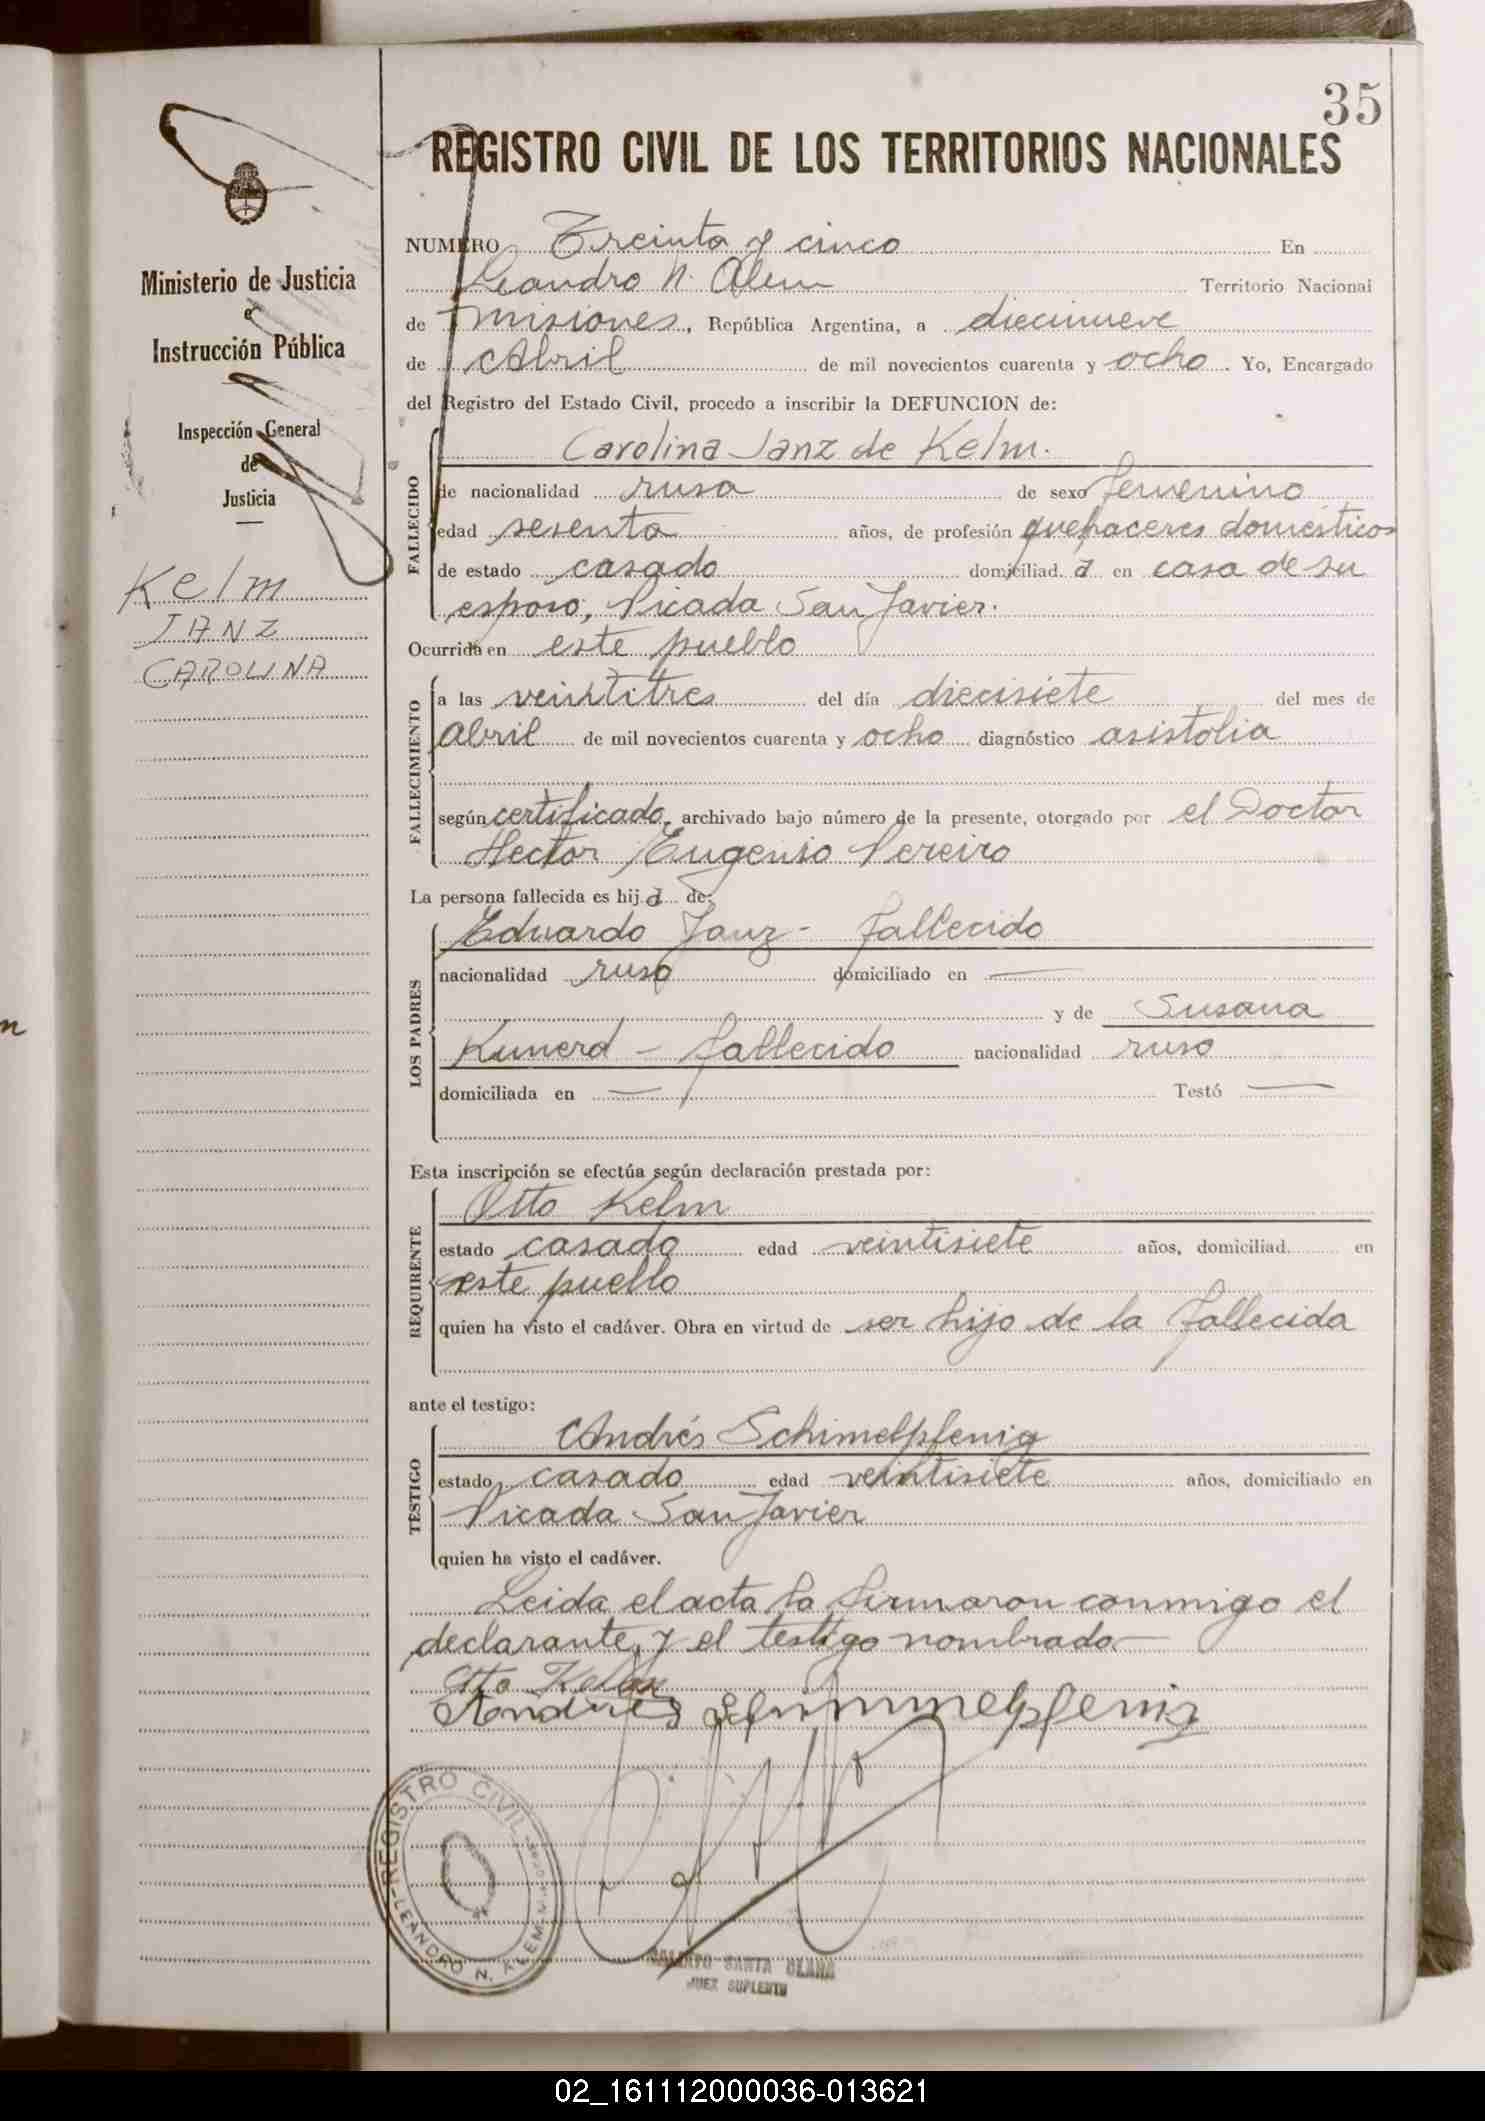 35
REGISTRO CIVIL DE LOS TERRITORIOS NACIONALES
Ministerio de Justicia
e
Instrucción Pública
Inspección General
de
Justicia
Kelm
JANZ
CAROLINA
NUMERO Treinta y cinco En
Leandro N. Alem Territorio Nacional
de Misiones, República Argentina, a diecinueve
de Abril de mil novecientos cuarenta y ocho. Yo, Encargado
del Registro del Estado Civil, procedo a inscribir la DEFUNCION de:
FALLECIDO
Carolina Janz de Kelm.
de nacionalidad rusa de sexo femenino
edad sesenta años, de profesión quehaceres domésticos
de estado casado domiciliad.a en casa de su
esposo, Picada San Javier.
Ocurrida en este pueblo
FALLECIMIENTO
a las veintitres del día diecisiete del mes de
Abril de mil novecientos cuarenta y ocho diagnóstico asistolia
según certificado, archivado bajo número de la presente, otorgado por el Doctor
Hector Eugenio Pereiro
La persona fallecida es hij.a de:
LOS PADRES
Eduardo Janz - fallecido
nacionalidad ruso domiciliado en —
y de Susana
Kunerd - fallecido nacionalidad ruso
domiciliada en — Testó —
Esta inscripción se efectúa según declaración prestada por:
REQUIRENTE
Otto Kelm
estado casado edad veintisiete años, domiciliad. en
este pueblo
quien ha visto el cadáver. Obra en virtud de ser hijo de la fallecida
ante el testigo:
TESTIGO
Andrés Schimelpfenig
estado casado edad veintisiete años, domiciliado en
Picada San Javier
quien ha visto el cadáver.
Leida el acta la firmaron conmigo el
declarante, y el testigo nombrado—
Otto Kelm
Andres Schimmelpfenig
REGISTRO CIVIL
LEANDRO N. ALEM
SANTA
JUEZ SUPLENTE
02_161112000036-013621